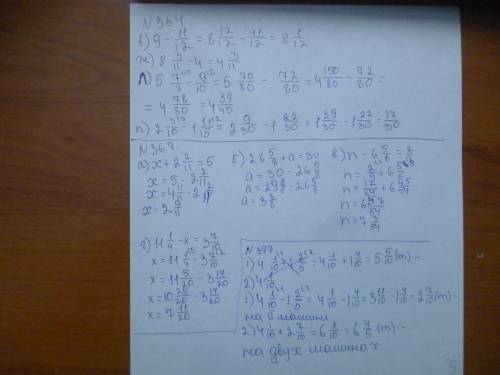 N 364
в) 9 - 11/12 = 8 12/12 - 11/12 = 8 1/12
ж) 8 3/11 - 4 = 4 3/11
л) 5 7/8 - 9/10 = 5 70/80 - 72/80 = 4 150/80 - 72/80 =
= 4 78/80 = 4 39/40
п) 2 3/10 - 1 11/15 = 2 9/30 - 1 22/30 = 1 39/30 - 1 22/30 = 17/30
N 367
а) x + 2 2/11 = 5
x = 5 - 2 2/11
x = 4 11/11 - 2 2/11
x = 2 9/11
б) 26 5/8 + a = 30
a = 30 - 26 5/8
a = 29 8/8 - 26 5/8
a = 3 3/8
в) n - 6 5/6 = 2/9
n = 2/9 + 6 5/6
n = 12/54 + 6 45/54
n = 6 57/54
n = 7 3/54
г) 11 1/4 - x = 3 7/10
x = 11 1/4 - 3 7/10
x = 11 5/20 - 3 14/20
x = 10 25/20 - 3 14/20
x = 7 11/20
N 377
2) 4 1/10
1) 4 1/10 - 1 2/5 = 4 1/10 - 1 4/10 = 3 11/10 - 1 4/10 = 2 7/10 (т) -
на II машине
2) 4 1/10 + 2 7/10 = 6 8/10 = 6 4/5 (т) -
на двух машинах